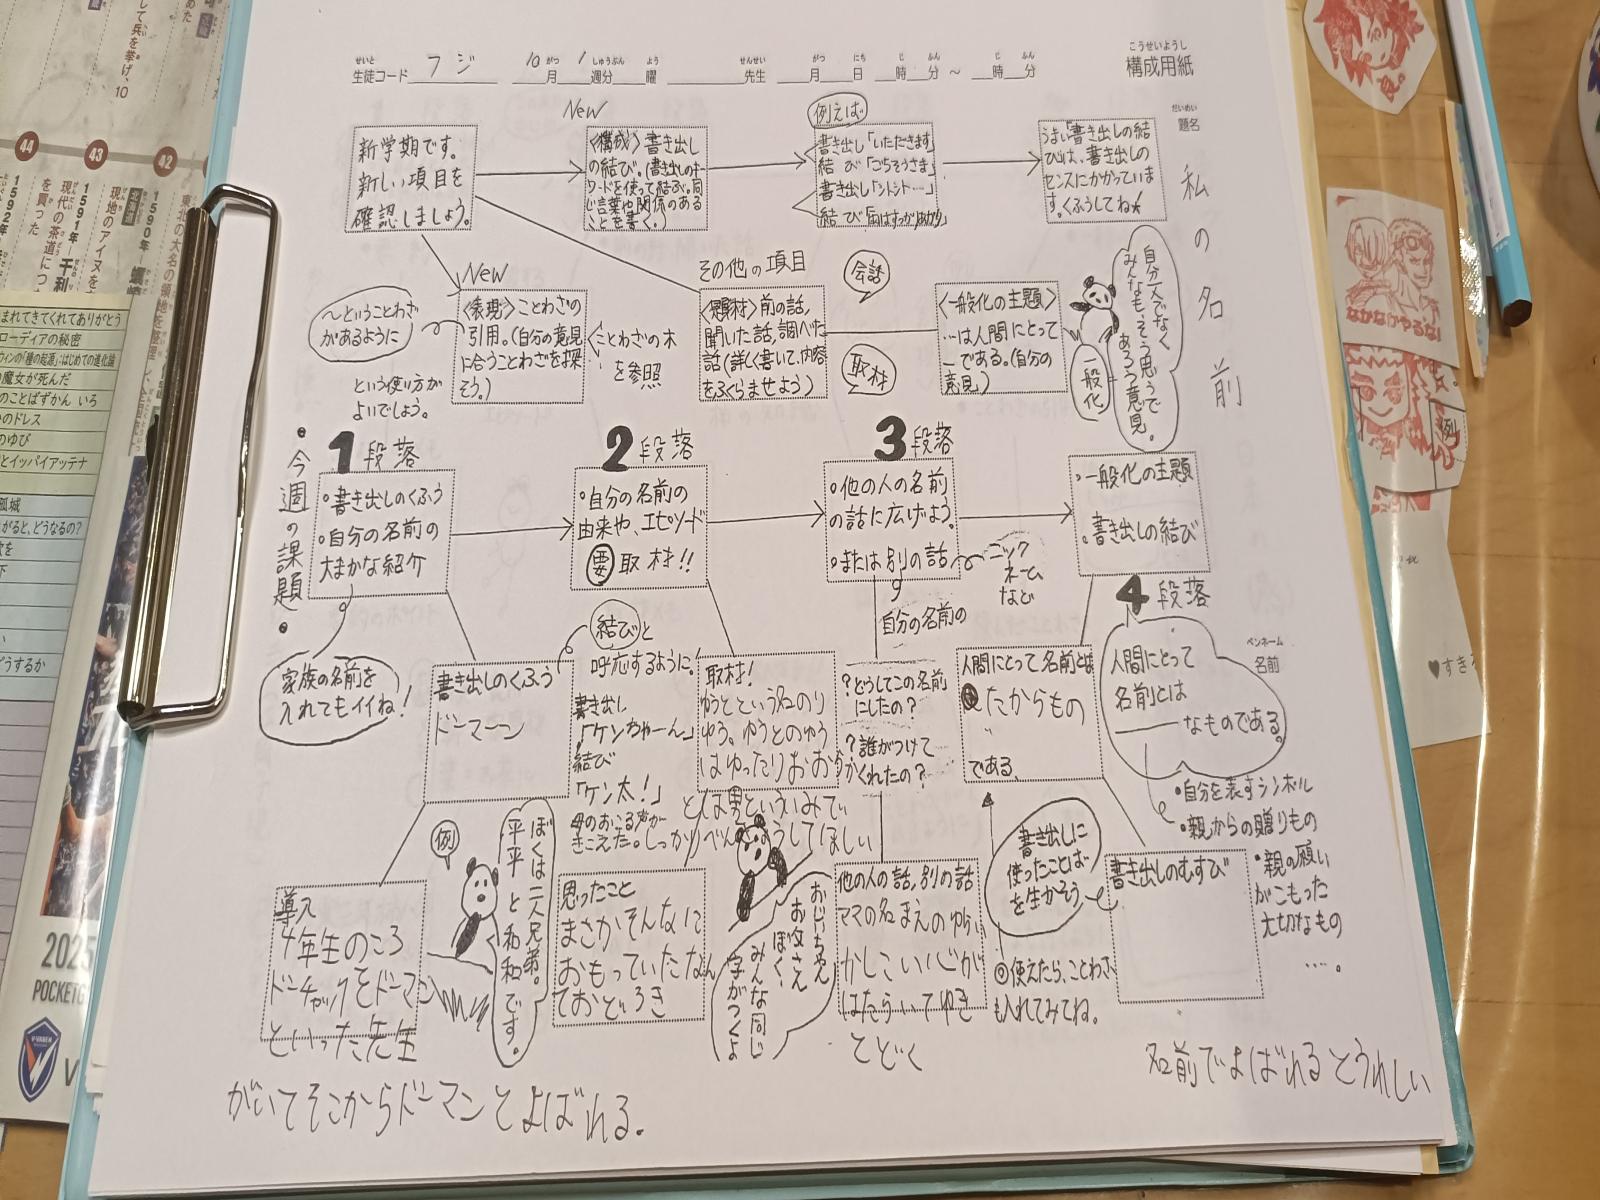 せいと
生徒コード フジ
10月 1週分 曜
がつ しゅうぶん よう
せんせい がつ にち じ ふん じ ふん
先生 月 日 時 分 ~ 時 分
こうせいようし
構成用紙
だいめい
題名
私の名前
新学期です。
新しい項目を
確認しましょう。
New
〈構成〉書き出し
の結び。(書き出しのキー
ワードを使って結ぶ。同
じ言葉や関係のある
ことを書く。)
例えば
書き出し「いただきます」
結び「ごちそうさま」
書き出し「シトシト…」
うまい「書き出しの結
び」は、書き出しの
センスにかかっていま
す。くふうしてね★
〜ということわざ
があるように
という使い方が
よいでしょう。
New
〈表現〉ことわざの
引用。(自分の意見
に合うことわざを探
そう。)
ことわざの木
を参照
その他の項目
〈題材〉前の話,
聞いた話,調べた
話(詳しく書いて,内容
をふくらませよう)
会話
取材
〈一般化の主題〉
…は人間にとって
ーである。(自分の
意見。)
自分一人でなく
みんなも、そう思うで
あろう意見。
一般化
・今週の課題・
1段落
・書き出しのくふう
・自分の名前の
大まかな紹介
家族の名前を
入れてもイイね!
2段落
・自分の名前の
由来や、エピソード
要取材!!
3段落
・他の人の名前
の話に広げよう。
・または別の話
ニック
ネーム
など
自分の名前の
・一般化の主題
・書き出しの結び
4段落
人間にとって
名前とは
なものである。
・自分を表すシンボル
・親からの贈りもの
・親の願い
がこもった
大切なもの
…。
ペンネーム
名前
書き出しのくふう
ドーマーン
結びと
呼応するように!
書き出し
「ケンちゃーん」
結び
「ケン太!」
母のおこる声が
きこえた。
取材!
ゆうとという名のり
ゆう。ゆうとのゆう
はゆったりおおゆ
とは男といういみで
しっかりべんきょうしてほしい
?どうしてこの名前
にしたの?
?誰がつけて
くれたの?
人間にとって名前とは
たからもの
である。
書き出しに
使ったことば
を生かそう
◎使えたら、ことわざ
も入れてみてね。
書き出しのむすび
名前でよばれるとうれしい
導入
4年生のころ
ドーチャックをドーマン
といった先生
がいてそこからドーマンとよばれる。
例
ぼくは二人兄弟。
平平と和和です。
思ったこと
まさかそんなに
おもっていたなん
ておどろき
おじいちゃん
お父さん
ぼく、
みんな同じ
字がつくよ
他の人の話,別の話
ママの名まえのゆらい
かしこい心が
はたらいてゆき
とどく
44
43
42
1592年
1591年
千利
を買った
現代の茶道につ
現地のアイヌを
1590年
東北の大名の領地を整理
まれてきてくれてありがとう
ローディアの秘密
ウィンの「種の起源」:はじめての進化論
魔女が死んだ
のことばずかん いろ
のドレス
のゆび
とイッパイアッテナ
孤城
がると、どうなるの?
どうするか
2025
V-VAREN
なかなかやるな!
♥すき